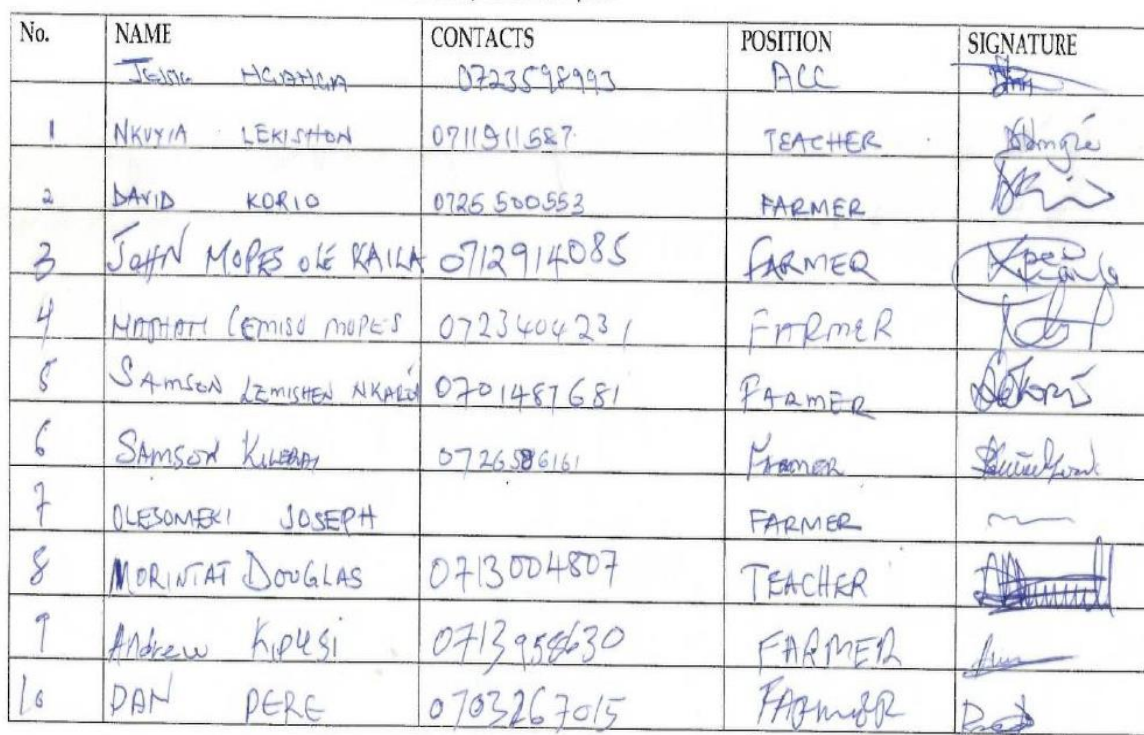 No. NAME CONTACTS POSITION SIGNATURE
0723598993 ACC
1 NKUYIA LEKISHON 0711911587 TEACHER
2 DAVID KORIO 0725 500553 FARMER
3 JOHN MOPES OLE KAILA 0712914085 FARMER
4 LEMISO MOPES 0723404231 FARMER
5 SAMSON LEMISHEN 0701487681 FARMER
6 SAMSON 0726586161 FARMER
7 OLESOMEKI JOSEPH FARMER
8 MORINTAT DOUGLAS 0713004807 TEACHER
9 Andrew KIPUSI 0713958630 FARMER
10 DAN PERE 0703267015 FARMER